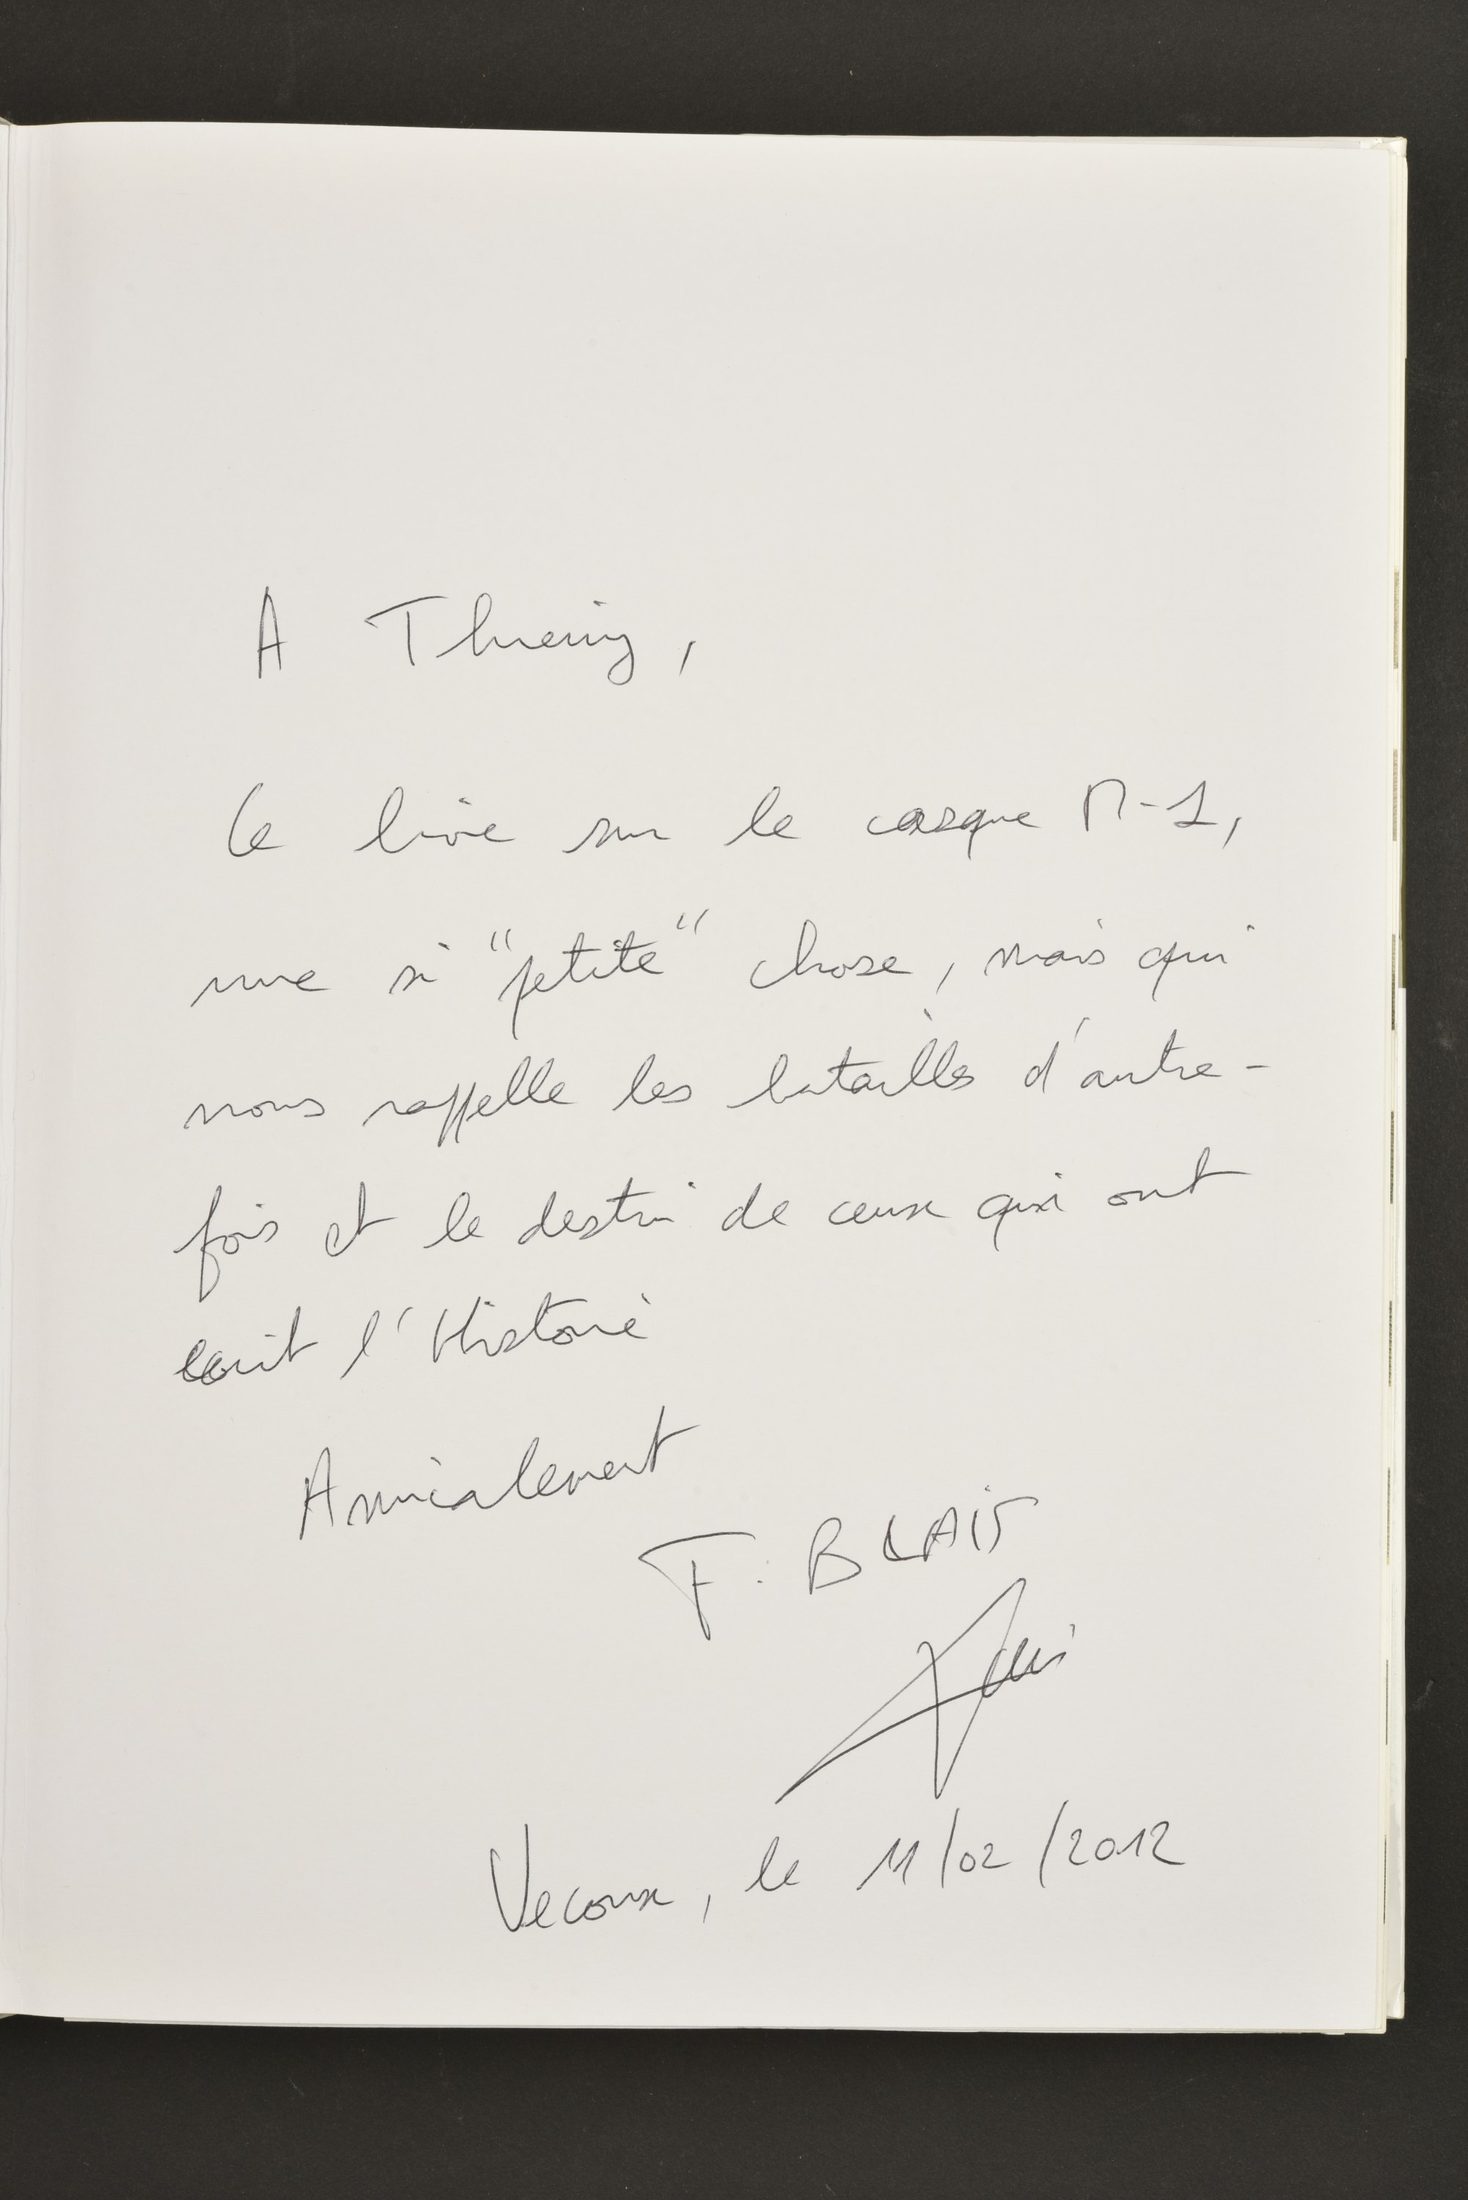 A Thierry,
Ce livre sur le casque M-1,
une si "petite" chose, mais qui
nous rappelle les batailles d'autre-
fois et le destin de ceux qui ont
écrit l'Histoire
Amicalement
F. BLAIS
Vecoux, le 11/02/2012